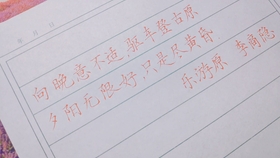 向晚意不适,驱车登古原
夕阳无限好,只是近黄昏
乐游原 李商隐